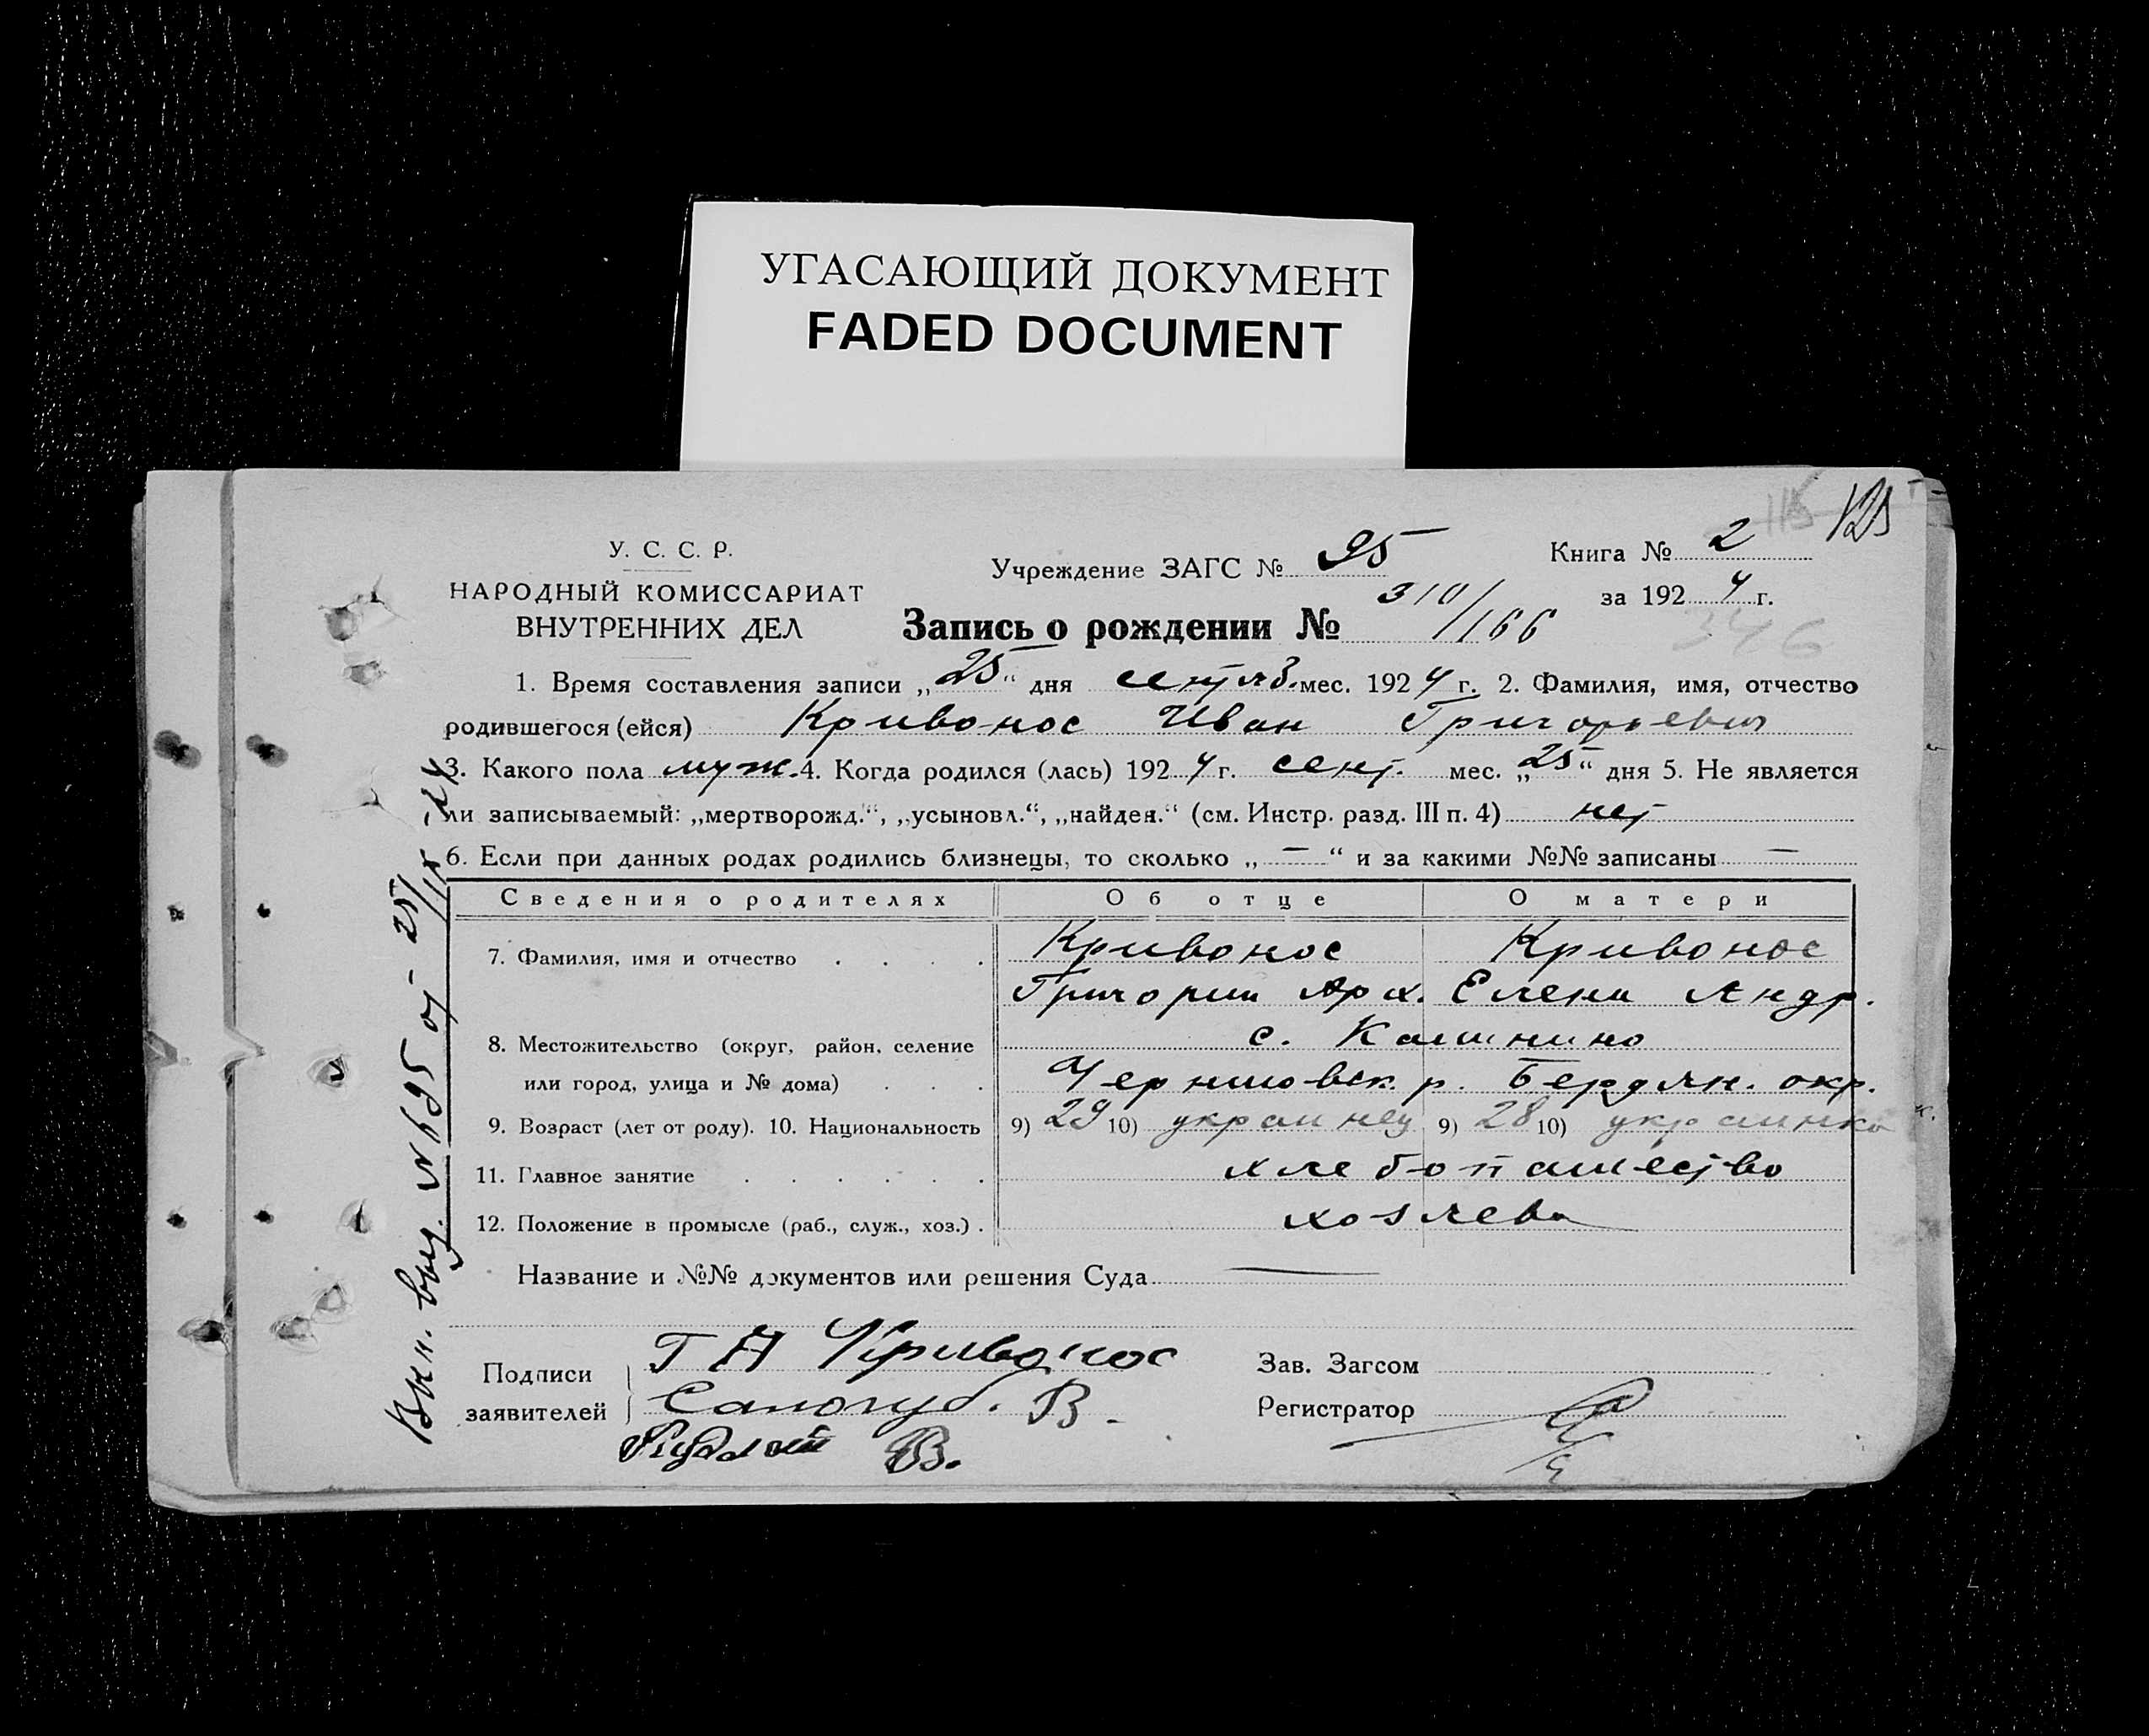 УГАСАЮЩИЙ ДОКУМЕНТ
FADED DOCUMENT
115 125
У. С. С. Р.
НАРОДНЫЙ КОМИССАРИАТ
ВНУТРЕННИХ ДЕЛ
Учреждение ЗАГС № 95
Книга № 2
за 1924 г.
Запись о рождении № 310/166
346
1. Время составления записи „25“ дня сентяб. мес. 1924 г. 2. Фамилия, имя, отчество
родившегося (ейся) Кривонос Иван Григорьевич
3. Какого пола муж. 4. Когда родился (лась) 1924 г. сент. мес. „25“ дня 5. Не является
ли записываемый: „мертворожд.“, „усыновл.“, „найден.“ (см. Инстр. разд. III п. 4) нет
6. Если при данных родах родились близнецы, то сколько „—“ и за какими №№ записаны —
Сведения о родителях Об отце О матери
7. Фамилия, имя и отчество . . . . Кривонос Кривонос
Григорий Арх. Елена Андр.
8. Местожительство (округ, район, селение с.
или город, улица и № дома) . . . р. Бердян. окр.
9. Возраст (лет от роду). 10. Национальность 9) 29 10) украинец 9) 28 10) украинка
11. Главное занятие . . . . . . хлебопашество
12. Положение в промысле (раб., служ., хоз.) . хозяева
Название и №№ документов или решения Суда —
Подписи
заявителей
Г А Кривонос
Сапогуб. В.
В.
Зав. Загсом
Регистратор
Вып. выд. № 695 от 25/IX-24